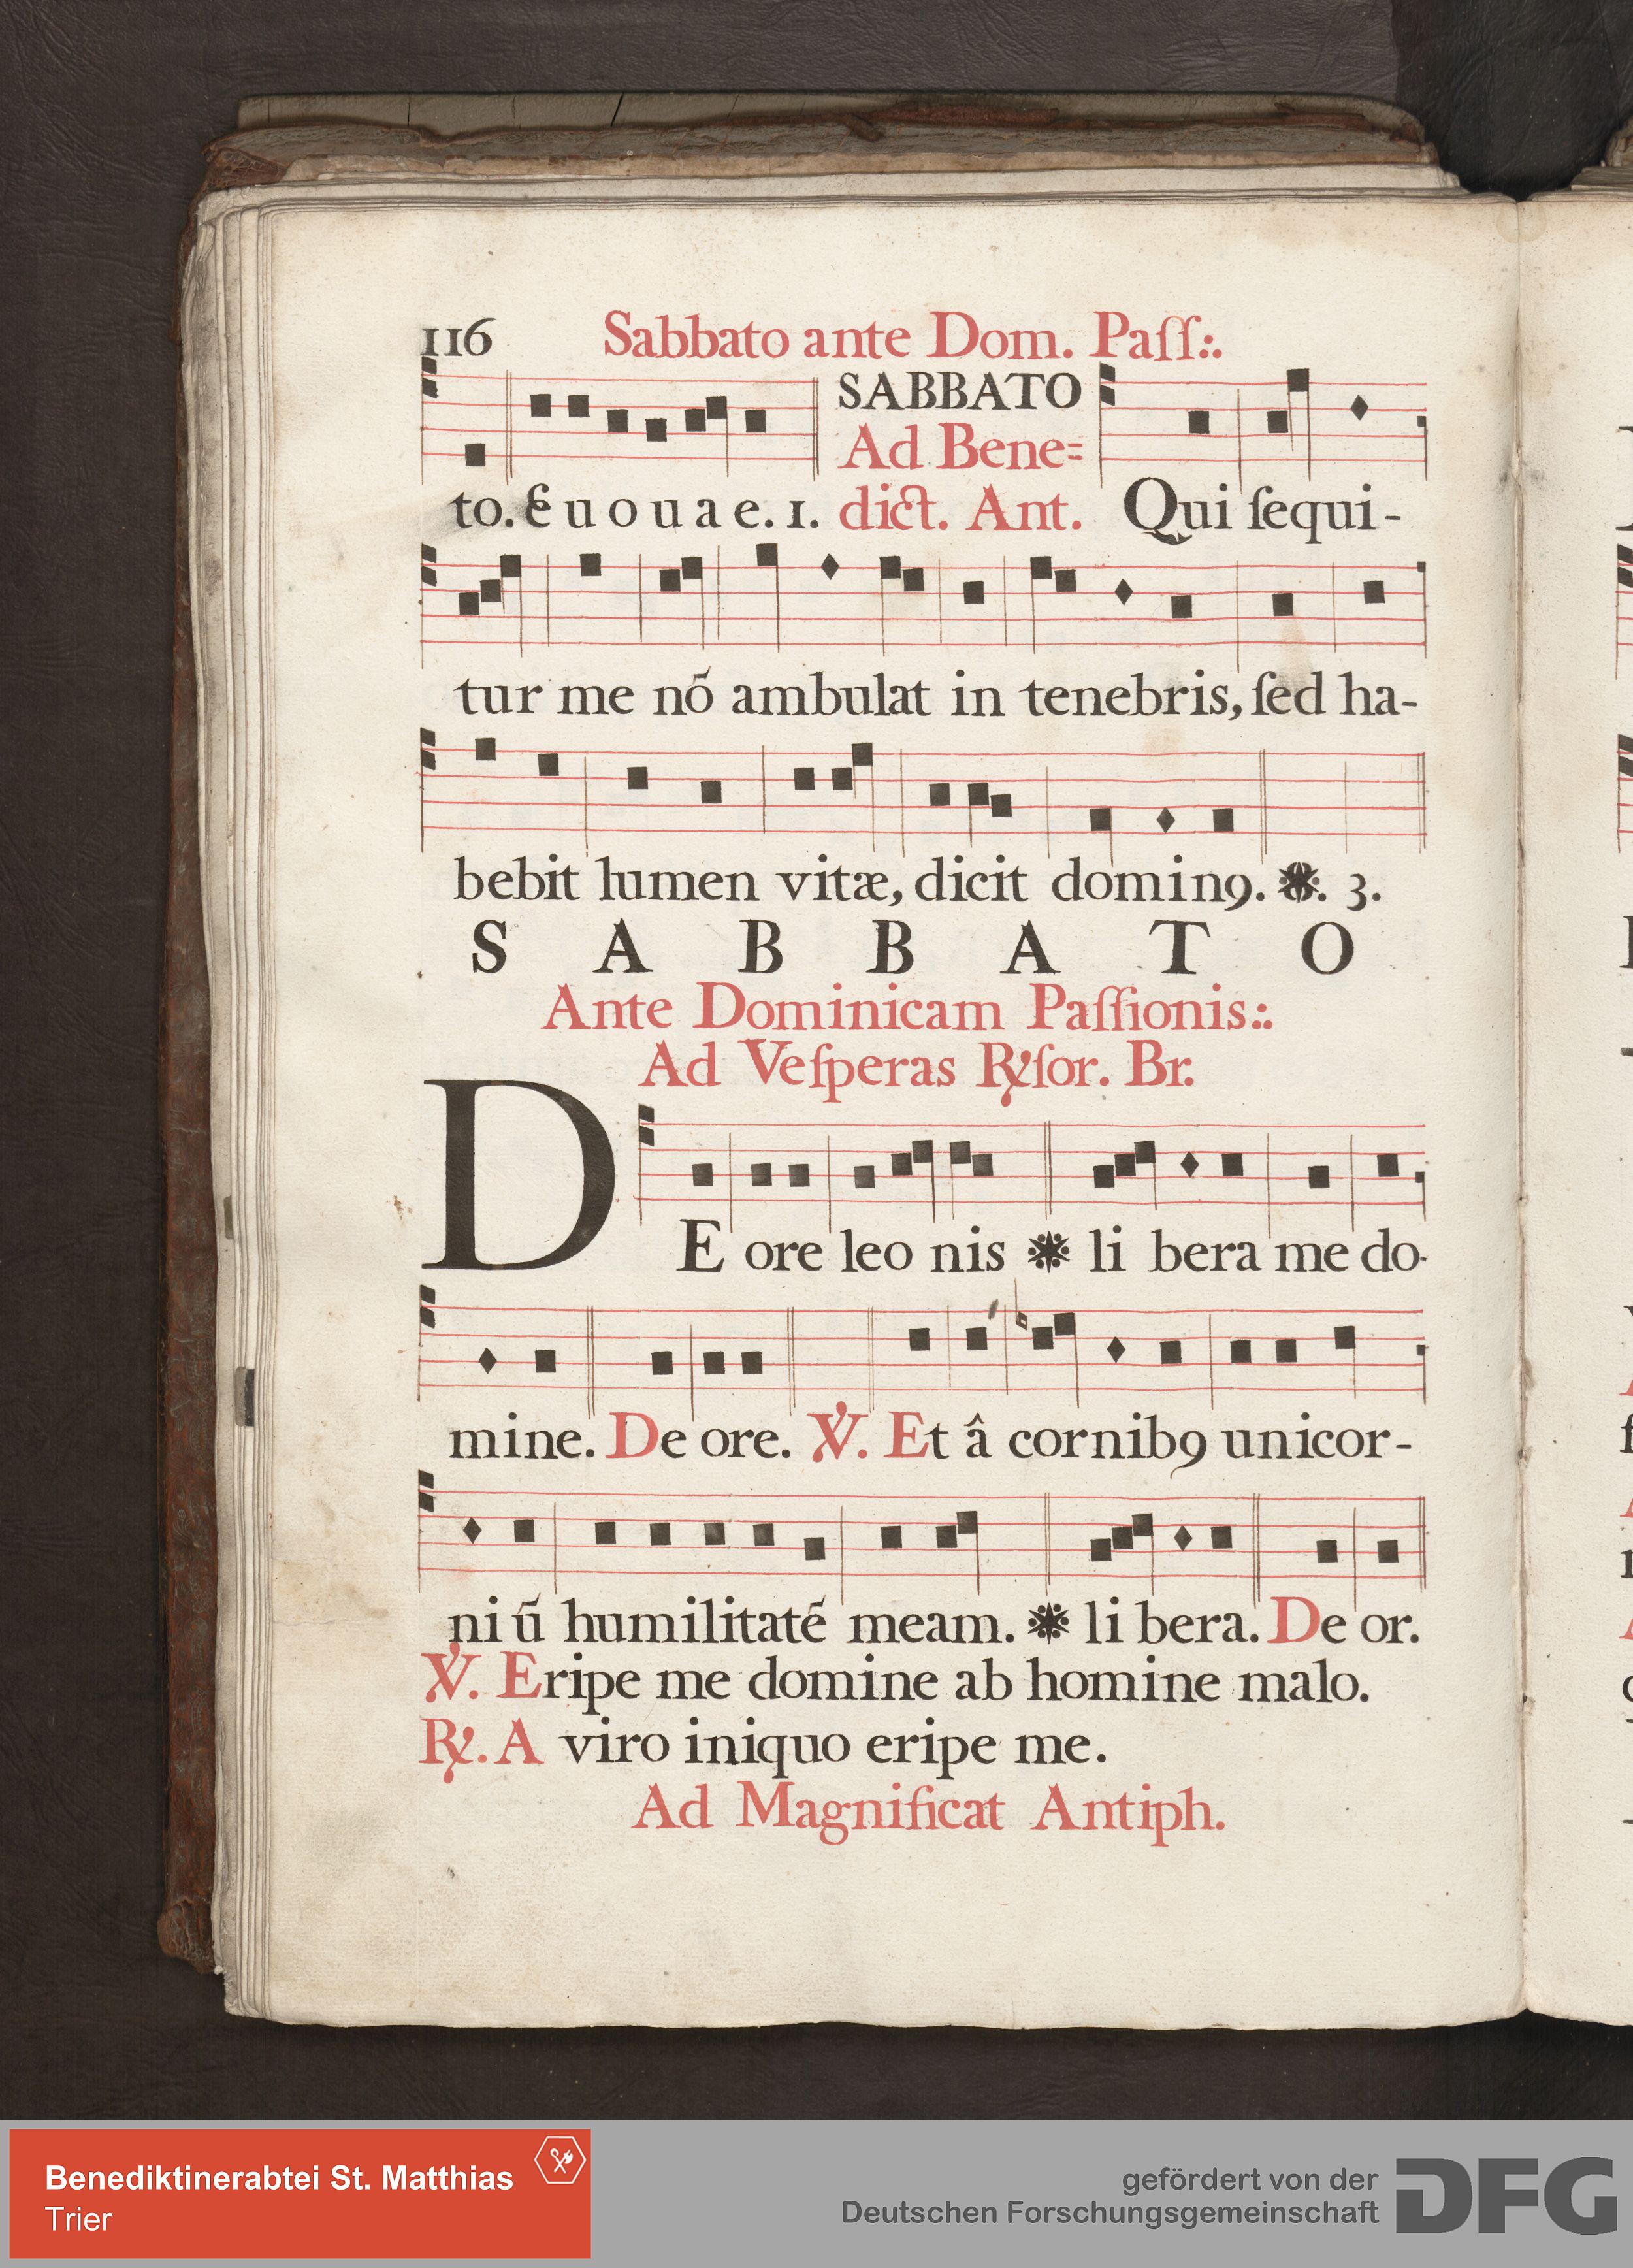 116 Sabbato ante Dom. Paſſ:.
SABBATO
Ad Bene=
to. Euouae. 1. dict. Ant. Qui ſequi-
tur me nõ ambulat in tenebris, ſed ha-
bebit lumen vitæ, dicit dominꝯ. ❋. 3.
S A B B A T O
Ante Dominicam Paſſionis:.
Ad Veſperas ℟ſor. Br.
DE ore leo nis ❋ li bera me do-
mine. De ore. ℣. Et â cornibꝯ unicor-
ni ũ humilitatẽ meam. ❋ li bera. De or.
℣. Eripe me domine ab homine malo.
℟. A viro iniquo eripe me.
Ad Magnificat Antiph.
Benediktinerabtei St. Matthias
Trier
gefördert von der
Deutschen Forschungsgemeinschaft
DFG